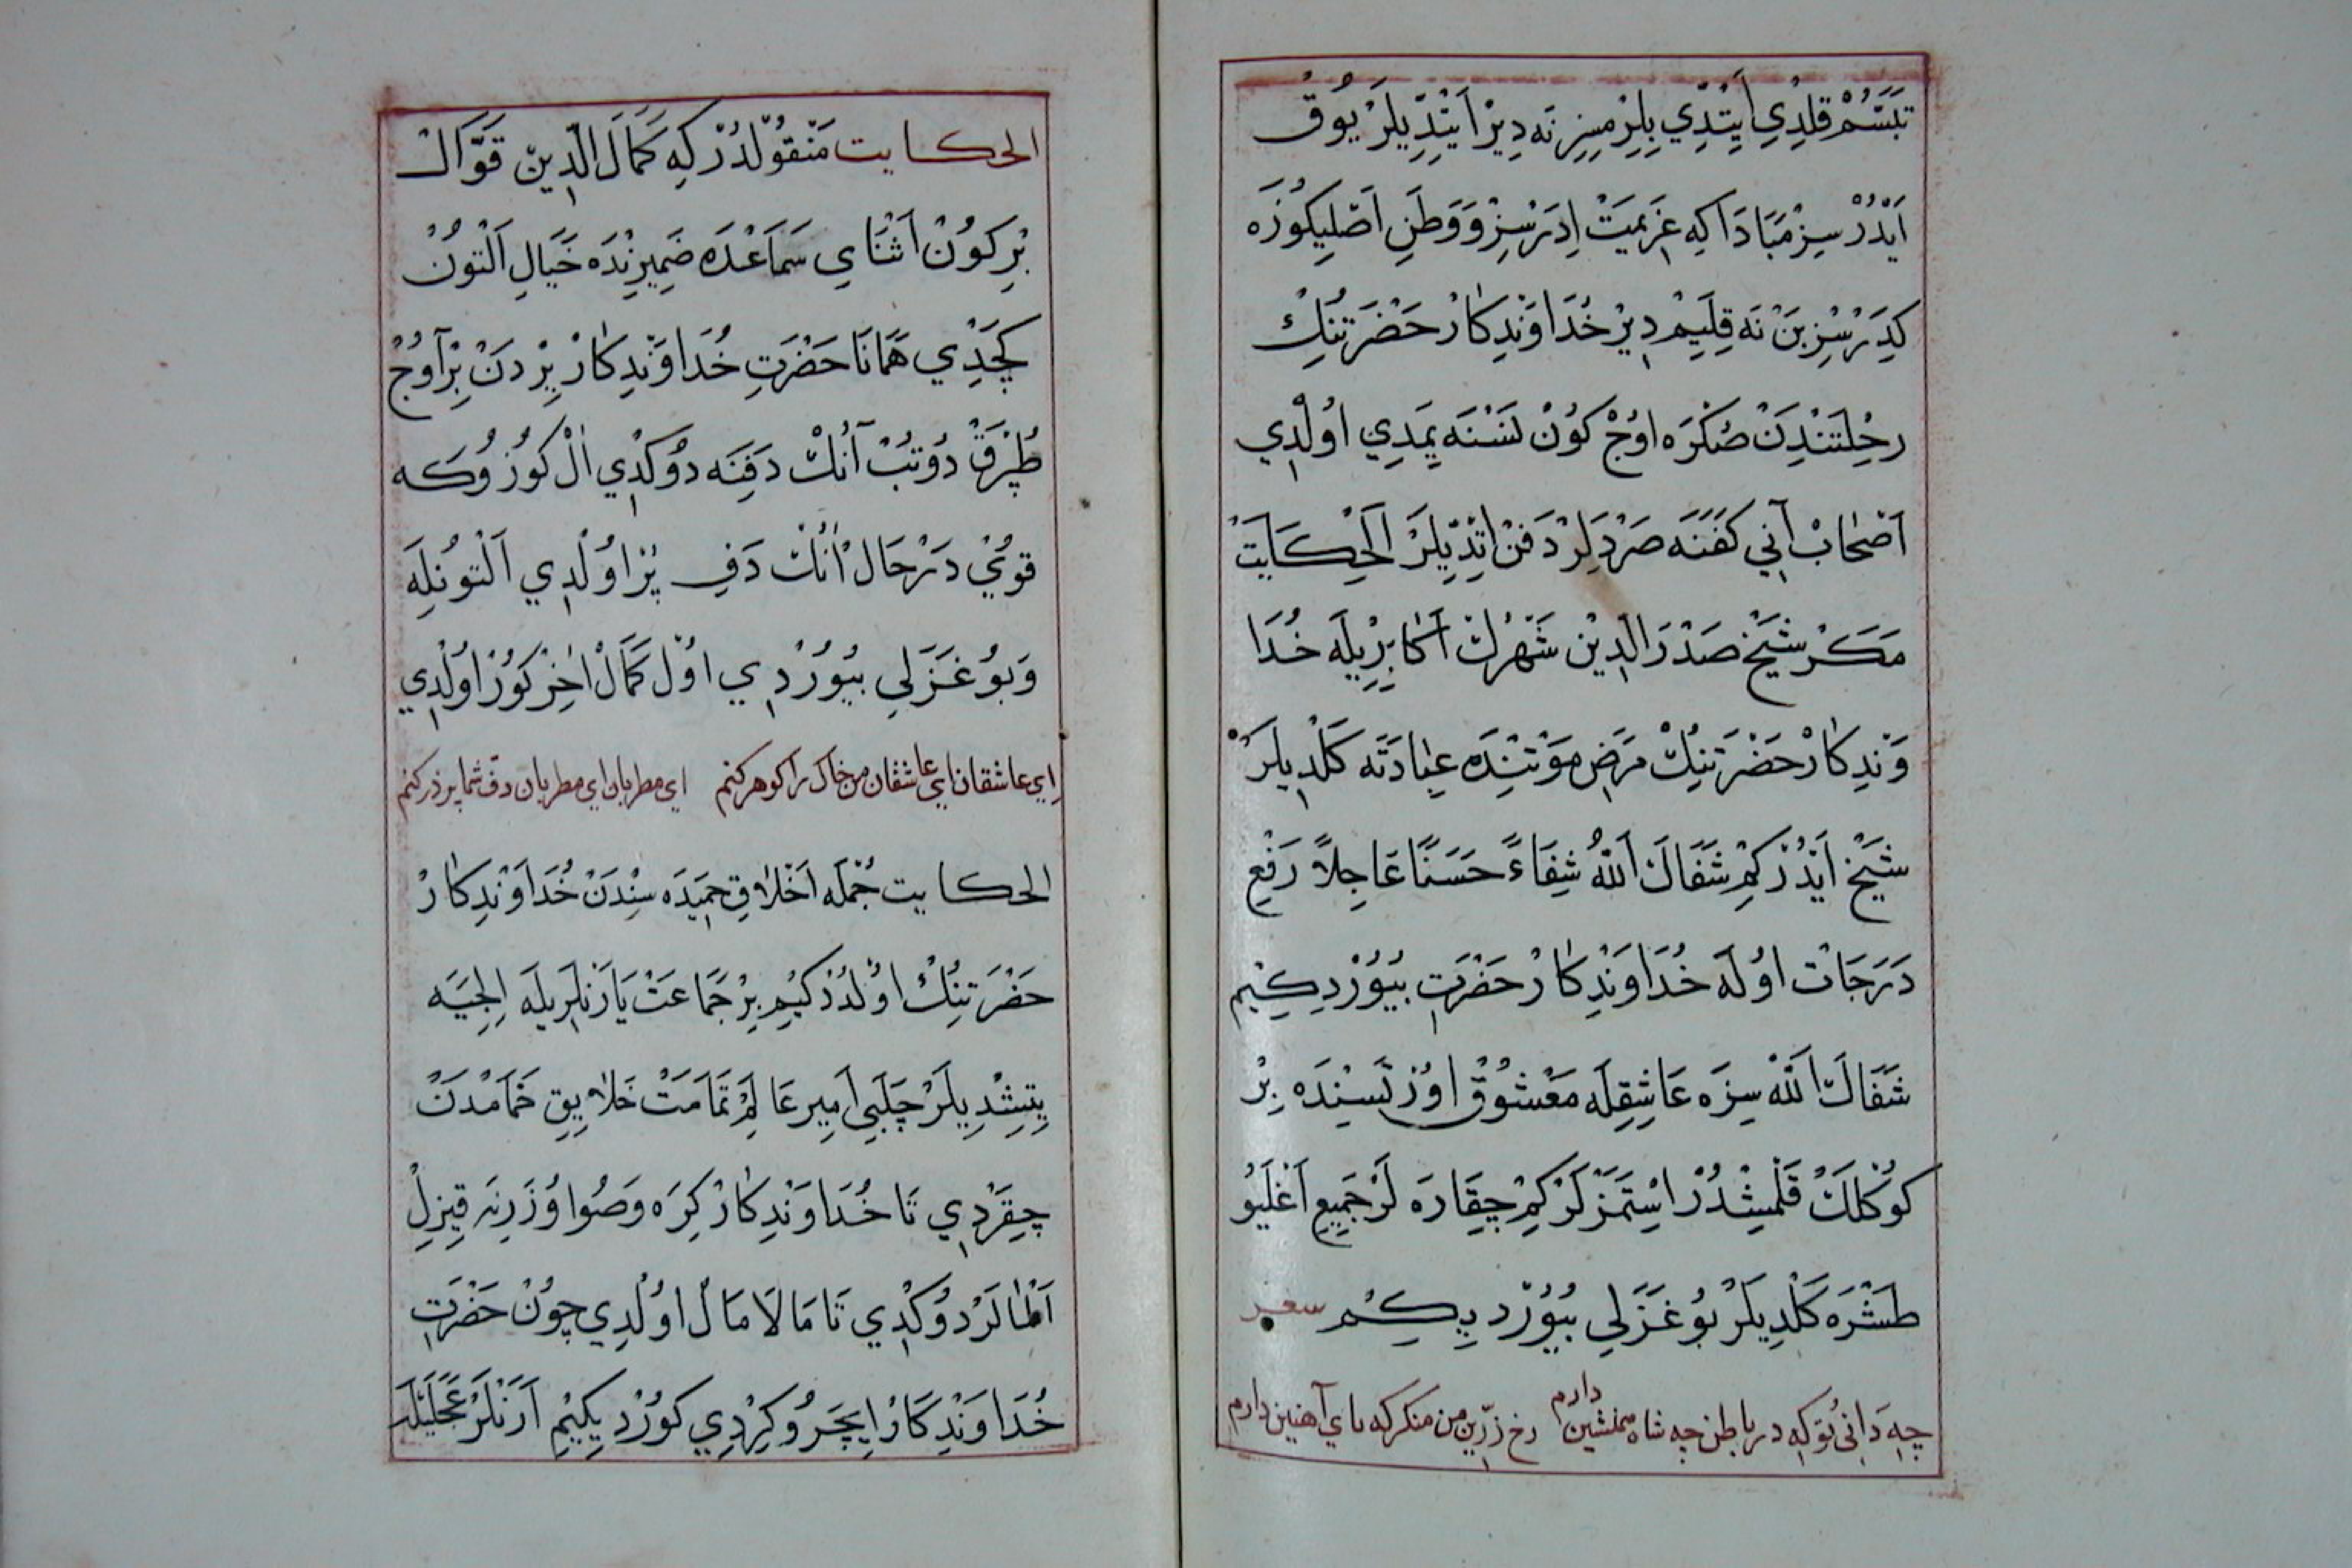 تَبَسُّمْ قِلْدِي اَيِتْدِي بِلِرْمِسِزِ نَه دِيرْ اَيِتْدِيلَرْ يُوقْ
اَيْدُرْ سِزْ مَبَادَا كِه عَزِيمَتْ اِدَرْسِزْ وَوَطَنِ اَصْلِيكُوزَه
كِدَرْسِزْ بَنْ نَه قِلَيِمْ دِيرْ خُدَاوَنْدِكَارْ حَضْرَتِنُكْ
رِحْلِتَنْدِنْ صُكْرَه اوُجْ كوُنْ نَسْنَه يِمَدِي اوُلْدِي
اَصْحَابْ آنِي كَفَنَه صَرْدِلَرْ دَفَنْ اِتْدِيلَرْ اَلْحِكَايَتْ
مَكَرْ شَيْخ صَدْرَالدِينْ شَهْرُكْ اَكَابِرِيلَه خُدَا
وَنْدِكَارْ حَضْرَتِنِكْ مَرَضِ مَوْتِنْدَه عِيَادَتَه كَلْدِيلَرْ
شَيْخ اَيْدُرْكِمْ شَفَاكَ اَللّٰهُ شِفَاءً حَسَنًا عَاجِلاً رَفْعِ
دَرَجَاتْ اوُلَه خُدَاوَنْدِكَارْ حَضْرَتِ بُيُوُرْدِكِيم
شَفَاكَ اَللّٰهْ سِزَه عَاشِقِلَه مَعْشُوقْ اوُرْتَسِنْدَه بِرْ
كوُكْلَكْ قَلْمِشْدُرْ اِسْتَمَزْلَرْكِمْ چِقَارَه لَرْ جَمِيعِ اَغْلَيُو
طَشْرَه كَلْدِيلَرْ بُو غَزَلِي بُيُوُرْدِيكِمْ سعر
چِه دَانِي تُو كِه دَر بَاطِن چِه شَاه همنشين دارم رخ زرّين من منكر كه باى آهنين دارم
الحكايت مَنْقُولْدُرْ كِه كَمَالَ الدِّينْ قَوَّالْ
بِرْكُونْ اَثْنَاىِ سَمَاعْدَه ضَمِيرِنْدَه خَيَالِ اَلْتُونْ
كَچْدِي هَمَانَا حَضْرَتِ خُدَاوَنْدِكَارْ يِرْدَنْ بِرْ آوُجْ
طُپْرَقْ دُوتُبْ آنُكْ دَفِنَه دُوكْدِي اَلْ كوُزُوكَه
قويْ دَرْحَالْ اَنُكْ دَفِ پُرْ اوُلْدِي اَلْتُونِلَه
وَبُو غَزَلِي بُيُوُرْدِي اوُلْ كَمَالْ اٰخِرْ كوُرْ اوُلْدِي
اي عاشقان اي عاشقان من خاك را كوهر كنم اى مطربان اى مطربان دفّ شما پر زر كنم
الحكايت جُمْلَه اَخْلَاقِ حَمِيدَه سِنْدَنْ خُدَاوَنْدِكَارْ
حَضْرَتِنُكْ اوُلْدُرْكِيمْ بِرْ جَمَاعَتْ يَارَنْلَرِيلَه اِلِجِيَه
يِتِشْدِيلَرْ چَلَبِي اَمِير عَالِمْ تَمَامَتْ خَلَايِقِ حَمَّامْدَنْ
چِقَرْدِي تَا خُدَاوَنْدِكَارْ كِرَه وَصُو اوُزَرِنَه قِيزِلْ
اَلْمَالَرْ دوُكْدِي تَا مَالَامَالْ اوُلْدِي چُونْ حَضْرَتِ
خُدَاوَنْدِكَارْ اِيچَرُو كِرْدِي كوُرْدِيكِيْمِ اَرَنْلَرْ عَجَلَيْلَه